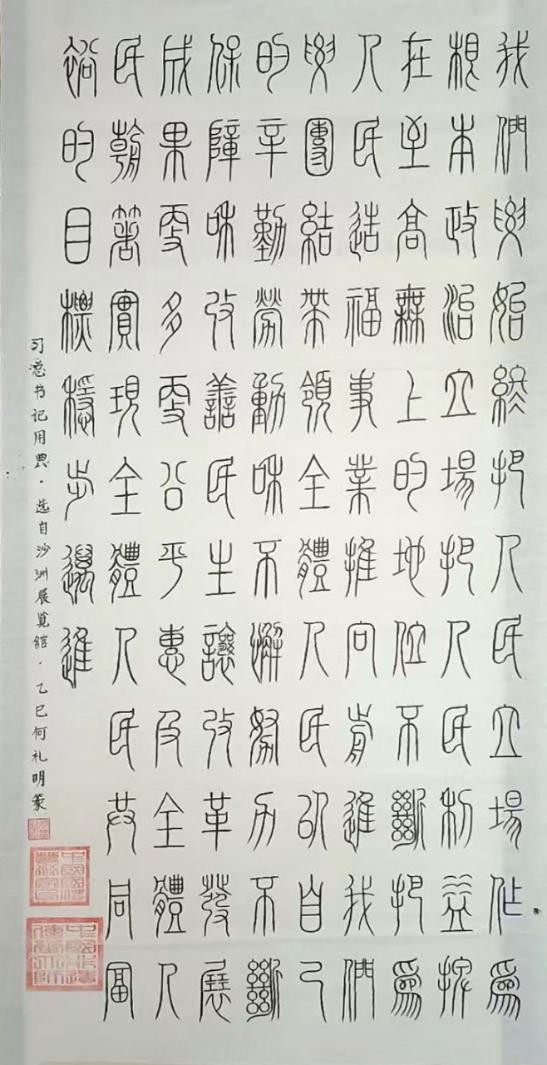 我們要始終把人民立場作為
根本政治立場把人民利益擺
在至高無上的地位不斷把為
人民造福事業推向前進我們
要團結帶領全體人民以自己
的辛勤勞動和不懈努力不斷
保障和改善民生讓改革發展
成果更多更公平惠及全體人
民朝著實現全體人民共同富
裕的目標穩步邁進
习总书记用典·选自沙洲展览馆·乙巳何礼明篆